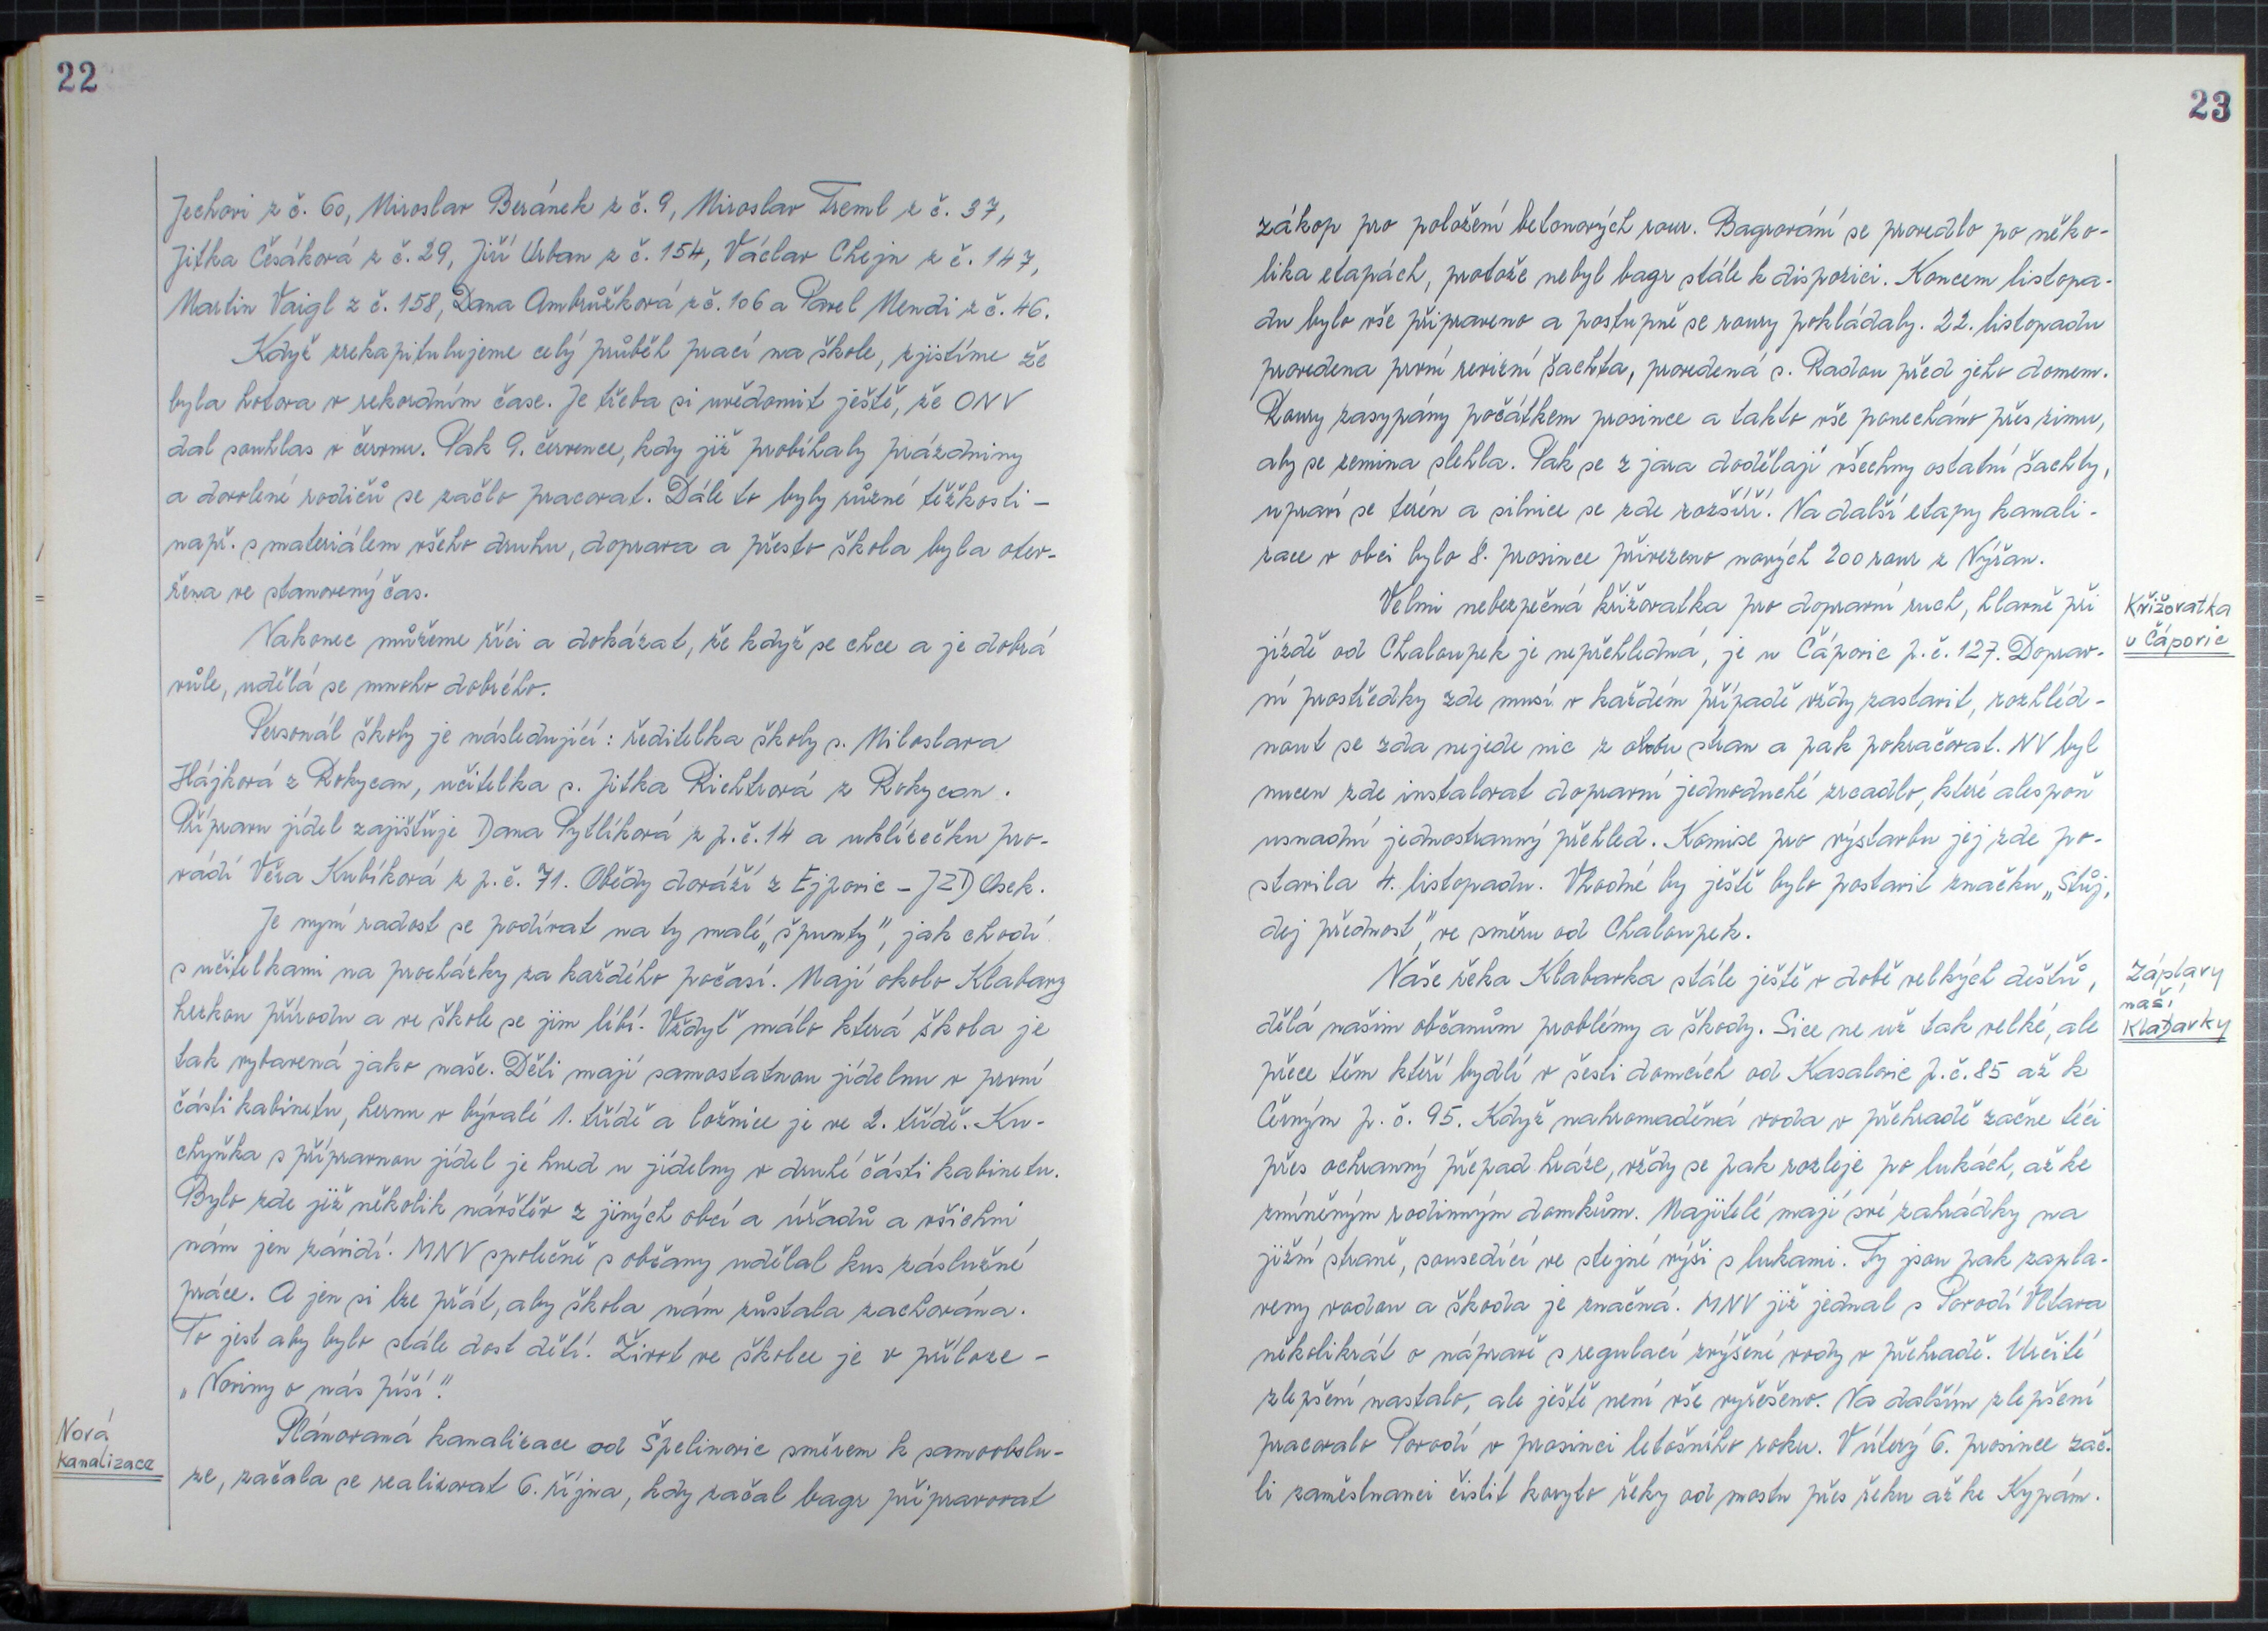 22
Jechovi z č. 60, Miroslav Beránek z č. 9, Miroslav Treml z č. 37,
Jitka Česáková z č. 29, Jiří Urban z č. 154, Václav Chejn z č. 147,
Martin Vaigl z č. 158, Dana Ambrůžková z č. 106 a Pavel Mendi z č. 46.
Když zrekapitulujeme celý průběh prací na škole, zjistíme že
byla hotova v rekordním čase. Je třeba si uvědomit ještě, že ONV
dal souhlas v červnu. Pak 9. července, kdy již probíhaly prázdniny
a dovolené rodičů se začlo pracovat. Dále to byly různé těžkosti -
např. s materiálem všeho druhu, doprava a přesto škola byla otev-
řena ve stanovený čas.
Nakonec můžeme říci a dokázat, že když se chce a je dobrá
vůle, udělá se mnoho dobrého.
Personál školy je následující: ředitelka školy s. Miloslava
Hájková z Rokycan, učitelka s. Jitka Richtrová z Rokycan.
Přípravu jídel zajištuje Dana Pytlíková z p.č. 14 a uklízečku pro-
vádí Věra Kubíková z p.č. 71. Obědy doráží z Ejpovic - JZD Osek.
Je nyní radost se podívat na ty malé „špunty", jak chodí
s učitelkami na procházky za každého počasí. Mají okolo Klabavy
hezkou přírodu a ve škole se jim líbí. Vždyť málo která škola je
tak vybavená jako naše. Děti mají samostatnou jídelnu v první
části kabinetu, hernu v bývalé 1. třídě a ložnice je ve 2. třídě. Ku-
chyňka s přípravnou jídel je hned u jídelny v druhé části kabinetu.
Bylo zde již několik návštěv z jiných obcí a úřadů a všichni
nám jen závidí. MNV společně s občany udělal kus záslužné
práce. A jen si lze přát, aby škola nám zůstala zachována.
To jest aby bylo stále dost dětí. Život ve školce je v příloze -
„Noviny o nás píší."
Nová
kanalizace
Plánovaná kanalizace od Špelinovic směrem k samoobslu-
ze, začala se realizovat 6. října, kdy začal bagr připravovat
23
zákop pro položení betonových rour. Bagrování se provedlo po něko-
lika etapách, protože nebyl bagr stále k dispozici. Koncem listopa-
du bylo vše připraveno a postupně se roury pokládaly. 22. listopadu
provedena první revizní šachta, provedená s. Radou před jeho domem.
Roury zasypány počátkem prosince a takto vše ponecháno přes zimu,
aby se zemina slehla. Pak se z jara dodělají všechny ostatní šachty,
upraví se terén a silnice se zde rozšíří. Na další etapy kanali-
zace v obci bylo 8. prosince přivezeno nových 200 rour z Nýřan.
Křižovatka
u Čápovic
Velmi nebezpečná křižovatka pro dopravní ruch, hlavně při
jízdě od Chaloupek je nepřehledná, je u Čápovic p.č. 127. Doprav-
ní prostředky zde musí v každém případě vždy zastavit, rozhléd-
nout se zda nejede nic z obou stran a pak pokračovat. NV byl
nucen zde instalovat dopravní jednoduché zrcadlo, které alespoň
usnadní jednostranný přehled. Komise pro výstavbu jej zde po-
stavila 4. listopadu. Vhodné by ještě bylo postavit značku „Stůj,
dej přednost", ve směru od Chaloupek.
Záplavy
naší
Klabavky
Naše řeka Klabavka stále ještě v době velkých dešťů,
dělá našim občanům problémy a škody. Sice ne už tak velké, ale
přece těm kteří bydlí v šesti domcích od Kasalovic p.č. 85 až k
Černým p.č. 95. Když nahromaděná voda v přehradě začne téci
přes ochranný přepad hráze, vždy se pak rozleje po lukách, až ke
zmíněným rodinným domkům. Majitelé mají své zahrádky na
jižní straně, sousedící ve stejné výši s lukami. Ty jsou pak zapla-
veny vodou a škoda je značná. MNV již jednal s Povodí Vltava
několikrát o nápravě s regulací zvýšené vody v přehradě. Určité
zlepšení nastalo, ale ještě není vše vyřešeno. Na dalším zlepšení
pracovalo Povodí v prosinci letošního roku. V úterý 6. prosince zač-
li zaměstnanci čistit koryto řeky od mostu přes řeku až ke Kypám.